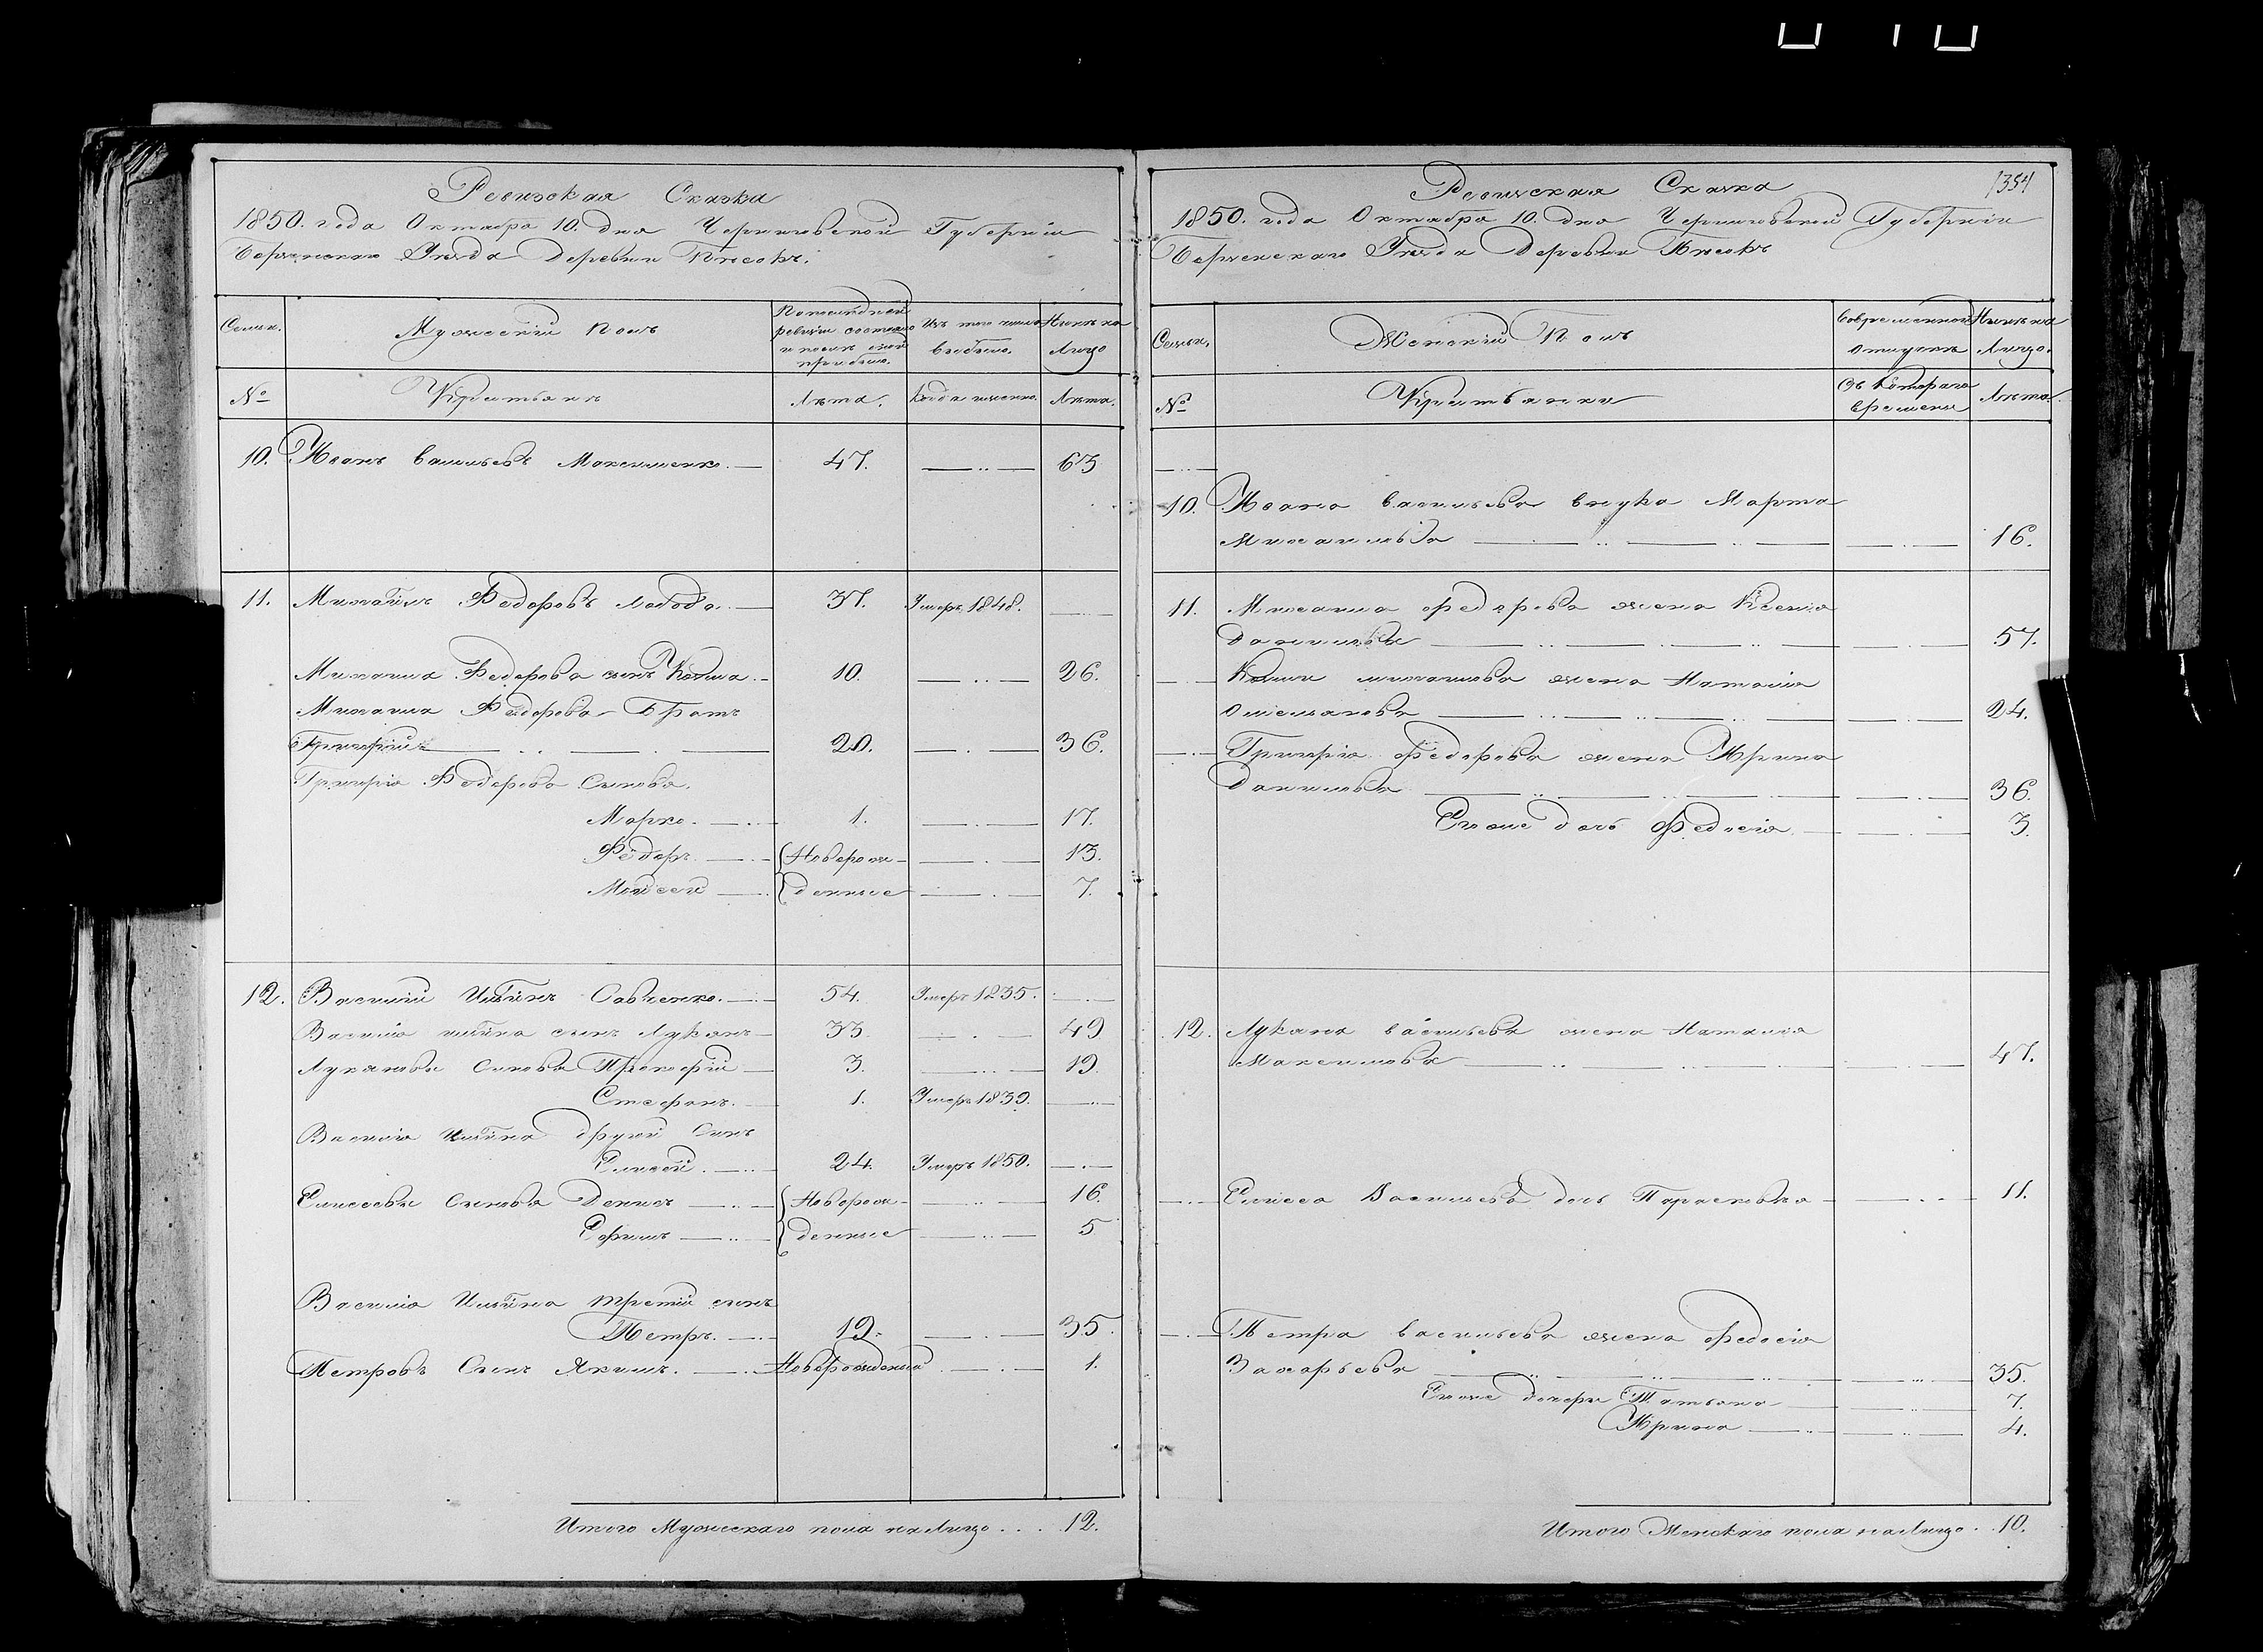 Ревизская Сказка
1850. года Октября 10. дня Черниговской Губернии
Борзенского Уезда Деревни Песокъ.
Семьи.
Мужеский полъ
По последней
ревизии состояло
и после оной
прибыло.
Изъ того числа
выбыло.
Ныне на
Лицо
№
Крестьяне
Лета.
Когда именно.
Лета.
10. Иванъ Васильевъ Максименко. 47. 63
11. Михайлъ Федоровъ Лобода. 37. Умеръ 1848.
Михаила Федорова сынъ Козма. 10. 26.
Михаила Федорова Братъ
Григорий 20. 36.
Григория Федорова Сыновья.
Марко. 1. 17.
Федоръ Новорож- 13.
Моисей денные 7.
12. Василий Ильинъ Савченко. 54. Умеръ 1835.
Василия Ильина сынъ Лукьянъ 33. 49
Лукьяновы Сыновья Прокофий 3. 19.
Стефанъ. 1. Умеръ 1839.
Василия Ильина другой Сынъ
Елисей. 24. Умеръ 1850.
Елисеевы Сыновья Денисъ Новорож- 16.
Ефимъ денные 5
Василия Ильина третий сынъ
Петръ. 19. 35.
Петровъ Сынъ Якимъ. Новорожденный 1.
Итого Мужескаго пола налицо . . . . 12.
Ревизская Сказка 1354
1850. года Октября 10. дня Черниговской Губернии
Борзенского Уезда Деревни Песокъ
Семьи.
Женский Полъ
Во временной
отлучке
Ныне на
Лицо.
№
Крестьянки
Съ которого
времени
Лета.
10. Ивана Васильева внука Марта
Михайлова 16.
11. Михаила Федорова жена Ксения
Данилова 57.
Козмы Михайлова жена Наталия
Омельянова 24.
Григория Федорова жена Ирина
Данилова 36.
Его же дочь Федосия 3.
12. Лукьяна Васильева жена Наталия
Максимова 47.
Елисея Васильева дочь Парасковия 11.
Петра Васильева жена Федосия
Захарьева 35.
Его же дочери Татьяна 7.
Ирина 4.
Итого Женскаго пола налицо . . 10.